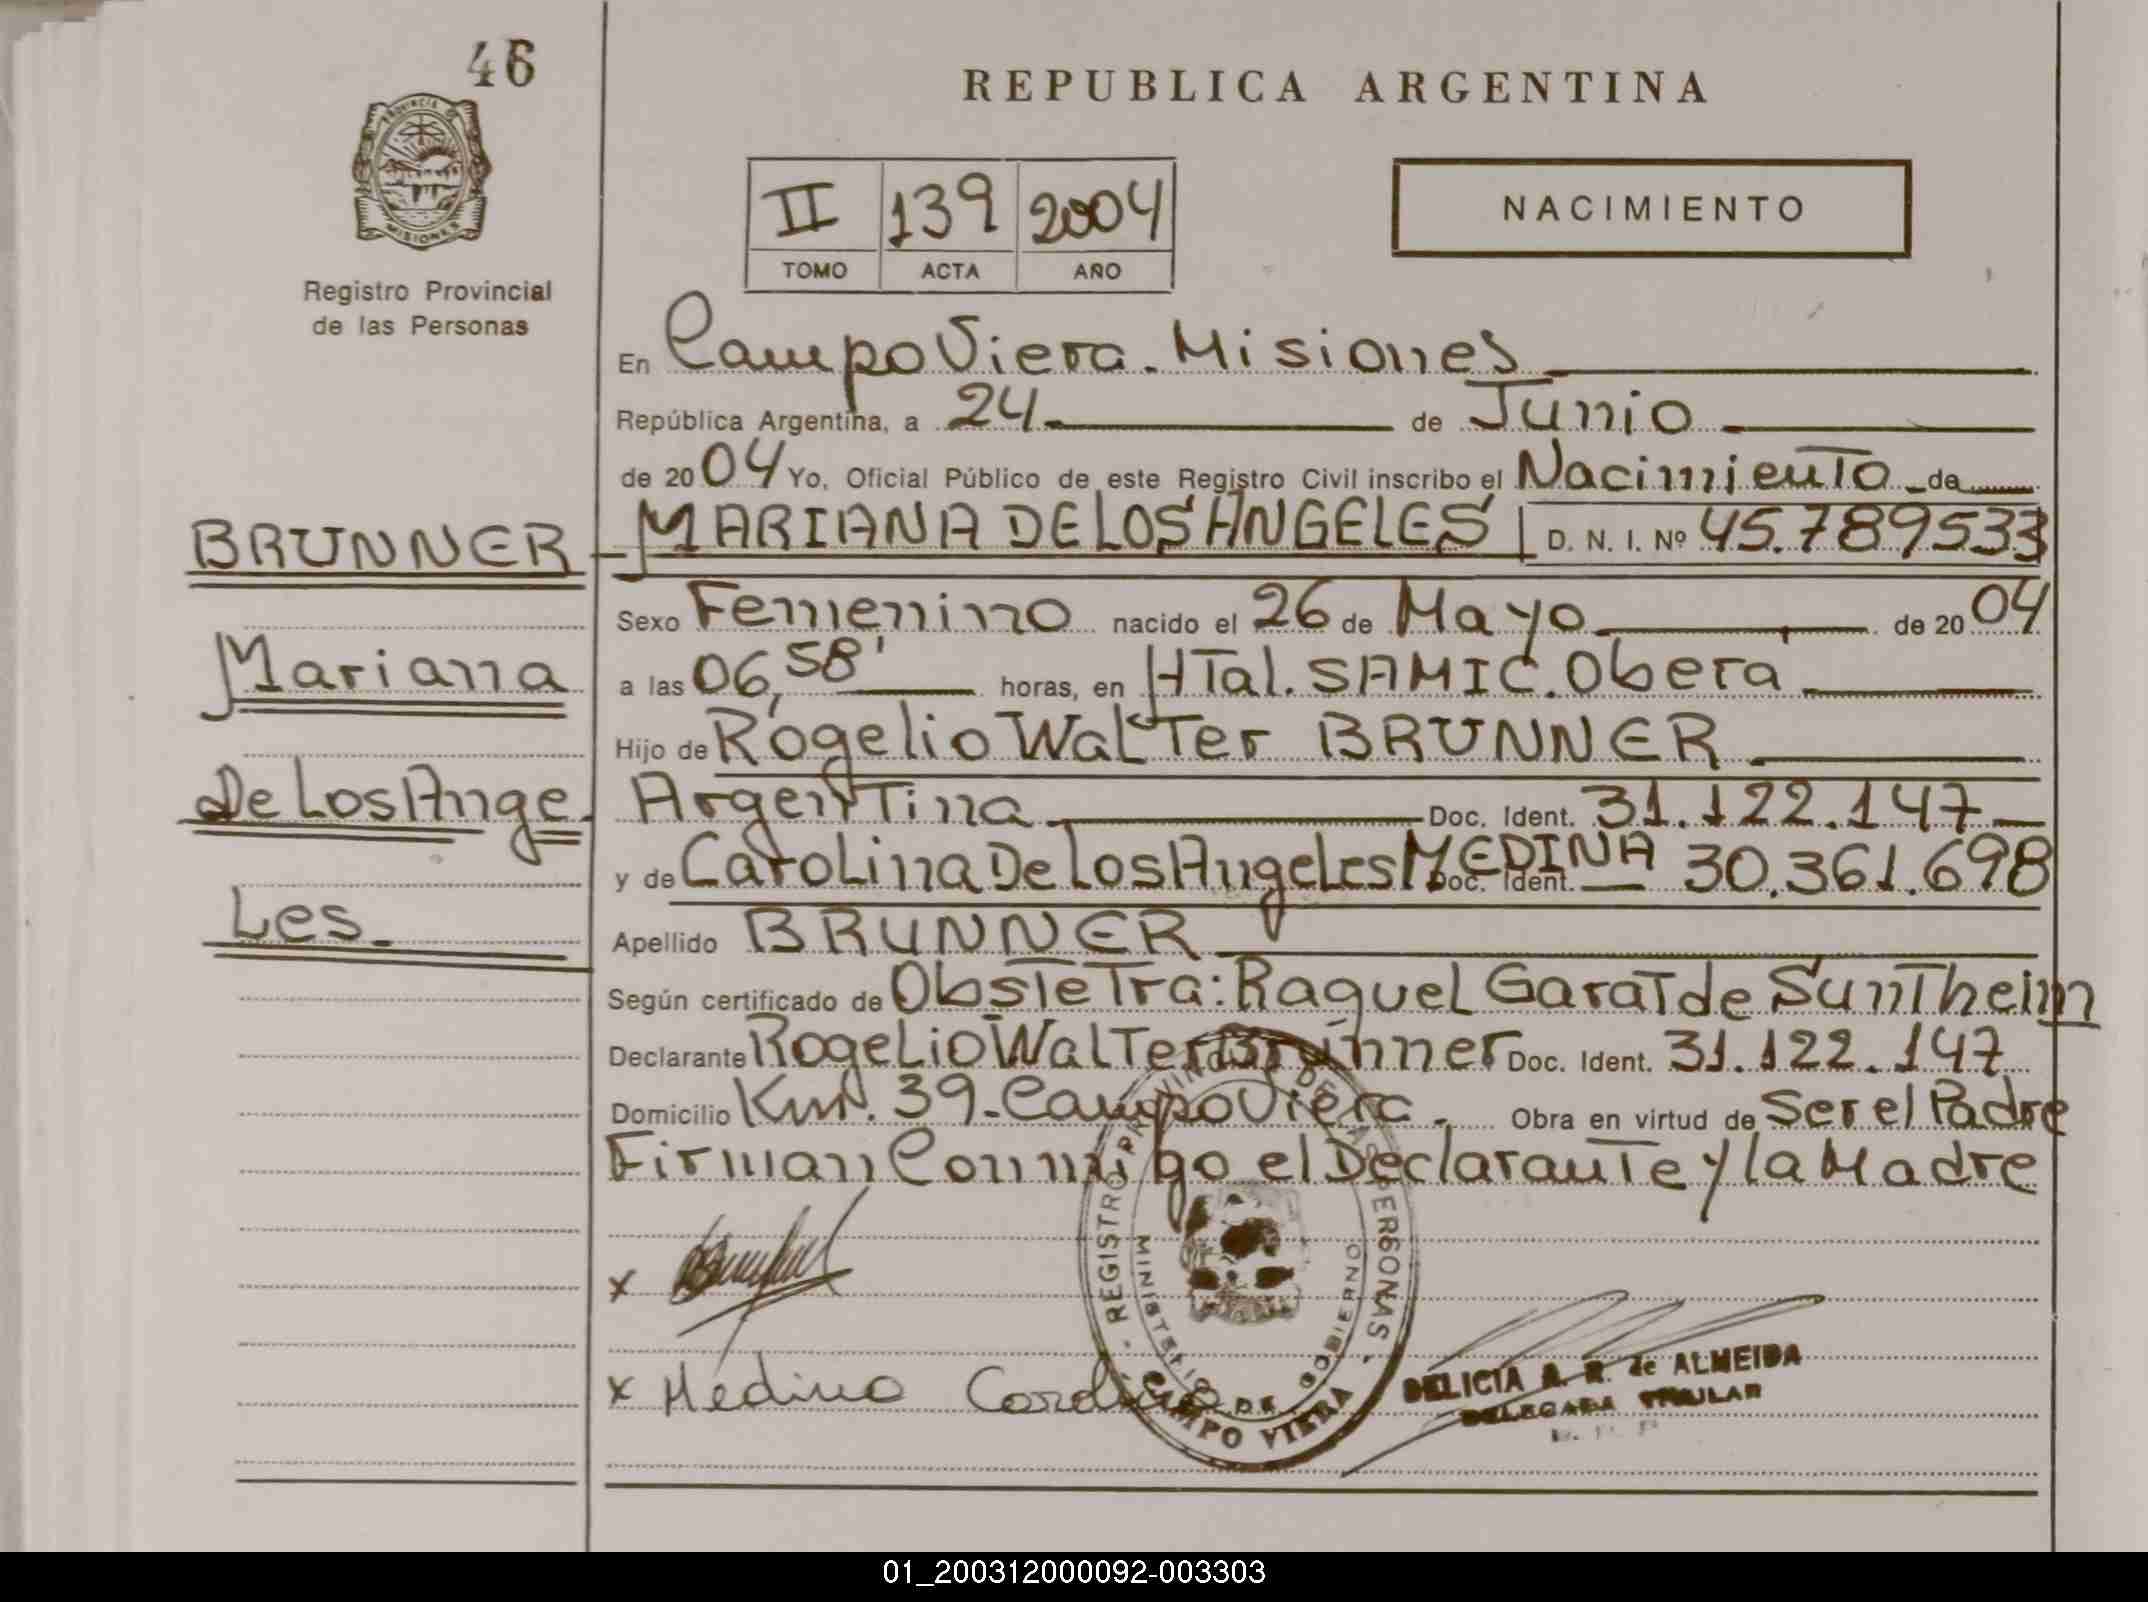 46
REPUBLICA ARGENTINA
PROVINCIA
MISIONES
Registro Provincial
de las Personas
II 139 2004
TOMO ACTA AÑO
NACIMIENTO
En Campo Viera. Misiones
República Argentina, a 24 de Junio
de 2004 Yo, Oficial Público de este Registro Civil inscribo el Nacimiento de
BRUNNER MARIANA DE LOS ANGELES D. N. I. Nº 45.789533
Sexo Femenino nacido el 26 de Mayo de 2004
Mariana
a las 06,58' horas, en HTal. SAMIC. Obera
Hijo de Rogelio Walter BRUNNER
De Los Ange
Argentina Doc. Ident. 31.122.147
y de Carolina De Los Angeles MEDINA Doc. Ident. 30.361.698
Les
Apellido BRUNNER
Según certificado de Obstetra: Raquel Garat de Suntheim
Declarante Rogelio Walter Brunner Doc. Ident. 31.122.147
Domicilio Km. 39. Campo Viera. Obra en virtud de Ser el Padre
Firman Conmigo el Declarante y la Madre
x
x Medina Carolina
REGISTRO PROVINCIAL DE LAS PERSONAS
MINISTERIO DE GOBIERNO
CAMPO VIERA
DELICIA A. R. de ALMEIDA
DELEGADA TITULAR
01_200312000092-003303